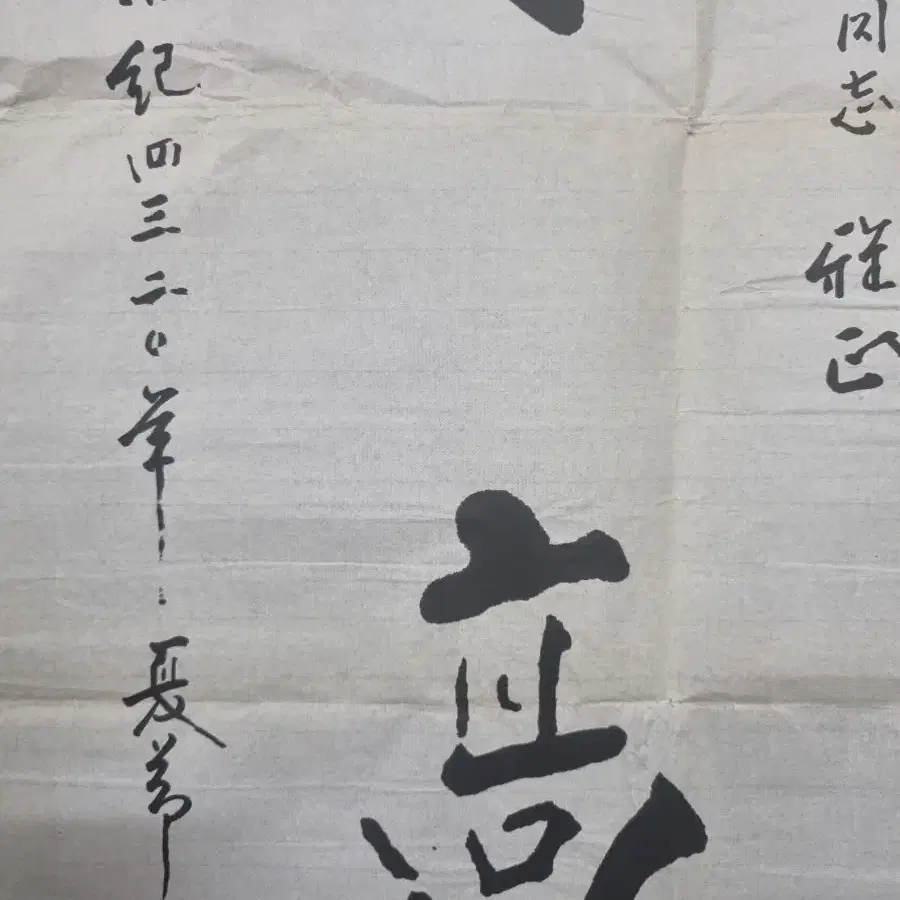 同志 雅正
紀四三二〇年 夏節